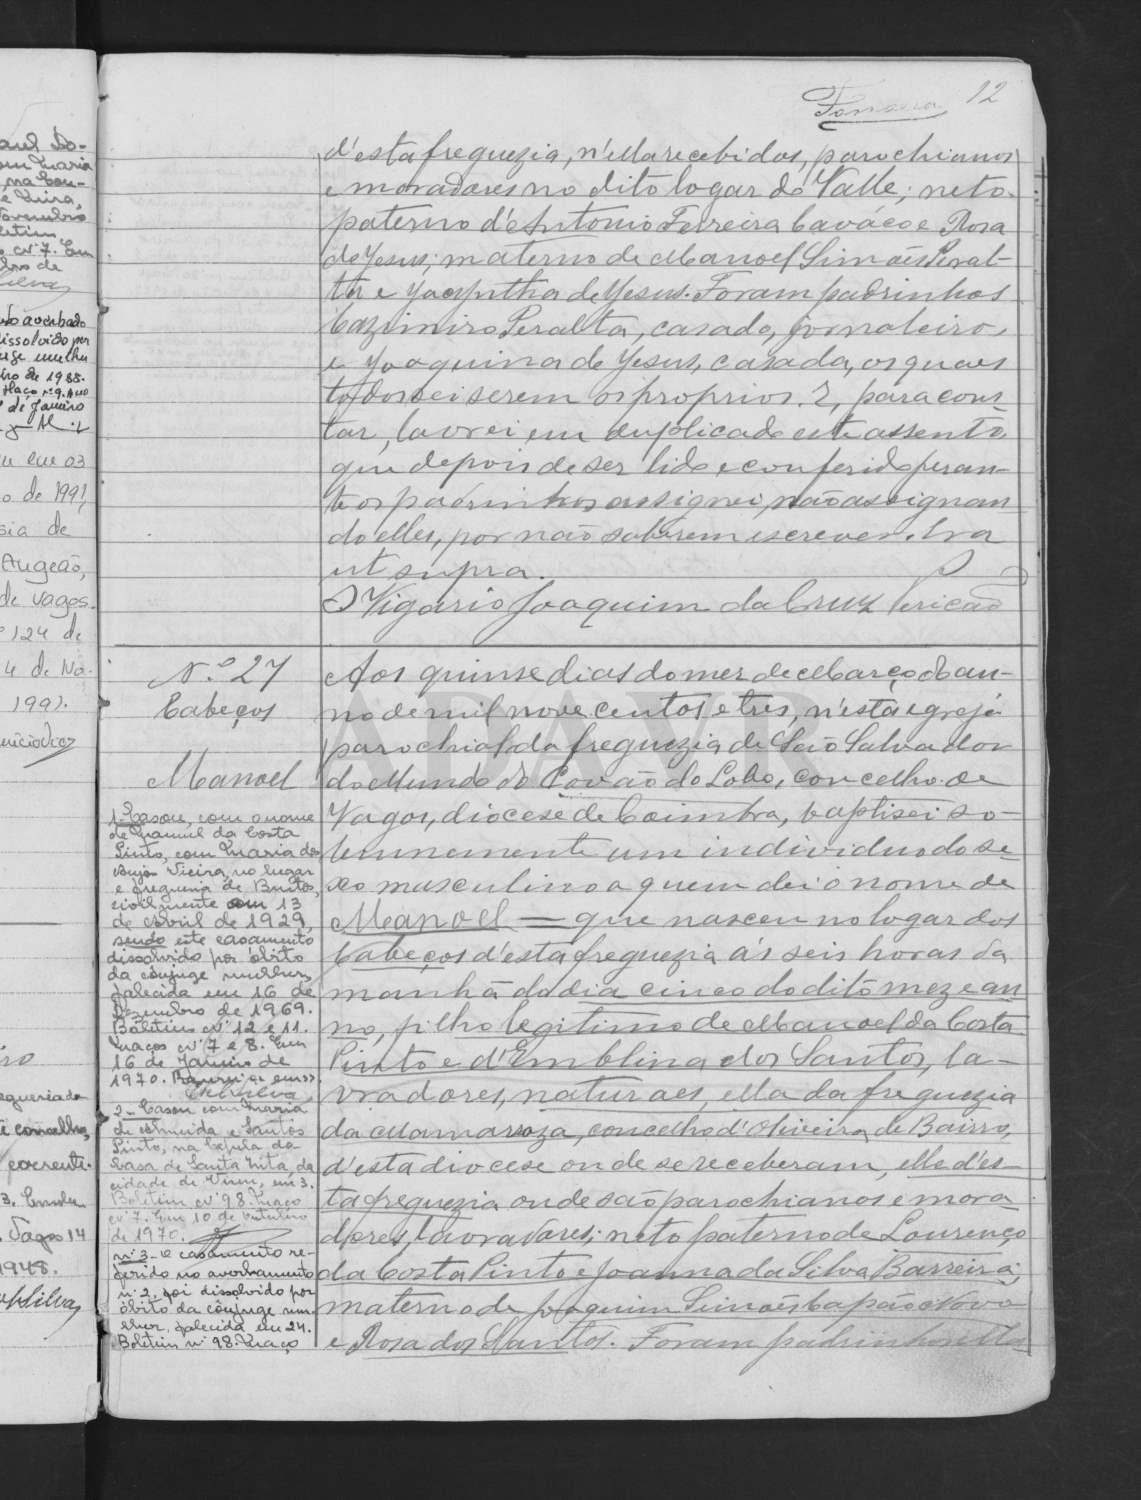 12
d'esta freguezia, n'ella recebidos, parochianos
e moradores no dito logar do Valle; neto
paterno d'Antonio Ferreira Caváco e Rosa
de Jesus; materno de Manoel Simões Peral-
ta e Jacyntha de Jesus. Foram padrinhos
Cazimiro Peralta, casado, jornaleiro,
e Joaquina de Jesus, casada, os quaes
todos sei serem os proprios. E, para cons-
tar, lavrei em duplicado este assento
que depois de ser lido e conferido peran-
te os padrinhos assignei, não assignan-
do elles, por não saberem escrever. Era
ut supra.
O Vigario Joaquim da Cruz Pericão
N.º 27
Cabeços
Manoel
Aos quinse dias do mez de Março do an-
no de mil nove centos e tres, n'esta egreja
parochial da freguezia de São Salvador
do Mundo do Covão do Lobo, concelho de
Vagos, diocese de Coimbra, baptisei so-
lemnemente um individuo do se-
xo masculino a quem dei o nome de
Manoel — que nasceu no logar dos
Cabeços d'esta freguezia ás seis horas da
manhã do dia cinco do dito mez e an-
no, filho legitimo de Manoel da Costa
Pinto e d'Emblina dos Santos, la-
vradores, naturaes, ella da freguezia
da Mamarroza, concelho d'Oliveira de Bairro,
d'esta diocese onde se receberam, elle d'es-
ta freguezia onde são parochianos e mora-
dores, lavradores; neto paterno de Lourenço
da Costa Pinto e Joanna da Silva Barreira;
materno de Joaquim Simões Capão Novo
e Rosa dos Santos. Foram padrinhos
1-Casou, com o nome
de Manuel da Costa
Pinto, com Maria dos
Anjos Vieira, no lugar
e freguesia de Bustos,
civilmente em 13
de Abril de 1929,
sendo este casamento
dissolvido por óbito
da cônjuge mulher,
falecida em 16 de
Dezembro de 1969.
Boletins nºs 12 e 11.
Maços nºs 7 e 8. Em
16 de Janeiro de
1970.
2-Casou com Maria
de Almeida e Santos
Pinto, na Capela da
Casa de Santa Zita, da
cidade de Viseu, em 3.
Boletim nº 98. Maço
nº 7. Em 10 de Outubro
de 1970.
nº 3-O casamento re-
ferido no averbamento
nº 2, foi dissolvido por
óbito da cônjuge mu-
lher, falecida em 24.
Boletim nº 98. Maço
de 1991
Angeão,
de Vagos.
124 de
4 de No-
1991.
concelho,
corrente.
Vagos 14
1948.